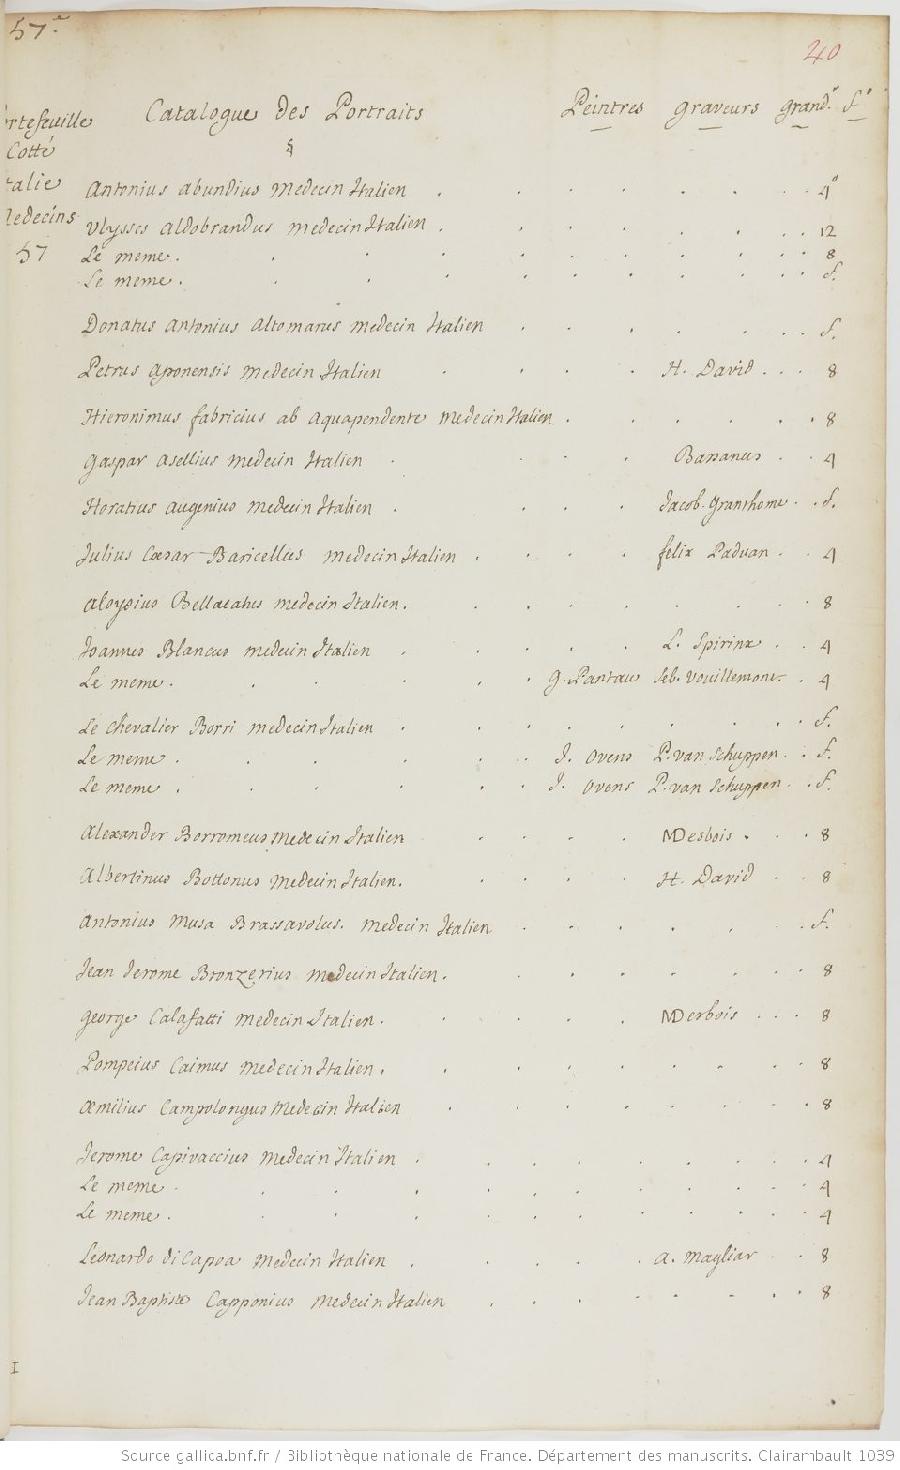 57.e
40
Catalogue des Portraits Peintres graveurs grand.r f.o
Cotté
§
Antonius abundius medecin Italien 4°
57
Ulysses aldobrandus medecin Italien 12
Le meme. 8
Le meme. f.
Donatus antonius altomarus medecin Italien f.
Petrus aponensis medecin Italien H. David 8
Hieronimus fabricius ab aquapendente medecin Italien 8
gaspar asellius medecin Italien Bassanus 4
Horatius augenius medecin Italien Jacob. granthome f.
Julius Cæsar Baricellus medecin Italien felix Paduan 4
aloysius Bellacatus medecin Italien. 8
Joannes Blancus medecin Italien L. Spirinx 4
Le meme. g. Pantau seb. vouillemont 4
Le chevalier Borri medecin Italien f.
Le meme. J. ovens P. van schuppen f.
Le meme. J. ovens P. van schuppen f.
alexander Borromeus medecin Italien MDesbois 8
albertinus Bottonus medecin Italien. H. David 8
antonius musa Brassavolus. medecin Italien f.
Jean Jerome Bronzerius medecin Italien. 8
george Calafatti medecin Italien. MDesbois 8
Pompeius Caimus medecin Italien. 8
æmilius Campolongus medecin Italien 8
Jerome Capivaccius medecin Italien 4
Le meme 4
Le meme. 4
Leonardo di Capoa medecin Italien a. magliar 8
Jean Baptiste Capponius medecin Italien 8
Source gallica.bnf.fr / Bibliothèque nationale de France. Département des manuscrits. Clairambault 1039